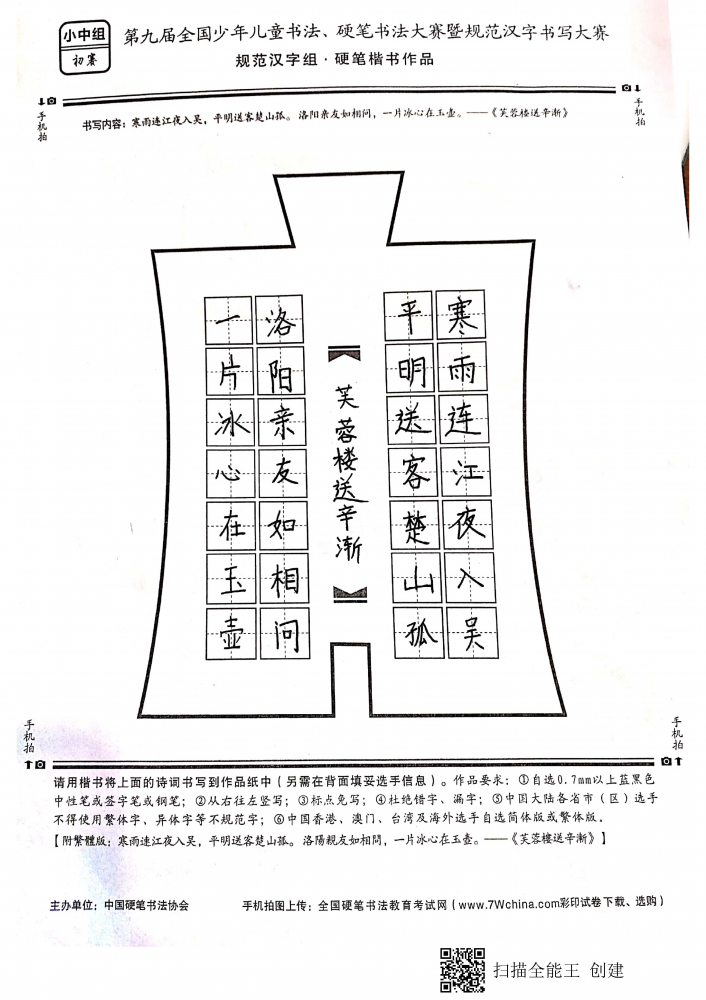 小中组
初赛
第九届全国少年儿童书法、硬笔书法大赛暨规范汉字书写大赛
规范汉字组·硬笔楷书作品
手机拍
手机拍
书写内容：寒雨连江夜入吴，平明送客楚山孤。洛阳亲友如相问，一片冰心在玉壶。——《芙蓉楼送辛渐》
寒雨连江夜入吴
平明送客楚山孤
芙蓉楼送辛渐
洛阳亲友如相问
一片冰心在玉壶
手机拍
手机拍
请用楷书将上面的诗词书写到作品纸中（另需在背面填妥选手信息）。作品要求：①自选0.7mm以上蓝黑色
中性笔或签字笔或钢笔；②从右往左竖写；③标点免写；④杜绝错字、漏字；⑤中国大陆各省市（区）选手
不得使用繁体字、异体字等不规范字；⑥中国香港、澳门、台湾及海外选手自选简体版或繁体版。
【附繁體版：寒雨連江夜入吳，平明送客楚山孤。洛陽親友如相問，一片冰心在玉壺。——《芙蓉樓送辛漸》】
主办单位：中国硬笔书法协会
手机拍图上传：全国硬笔书法教育考试网（www.7Wchina.com彩印试卷下载、选购）
扫描全能王 创建